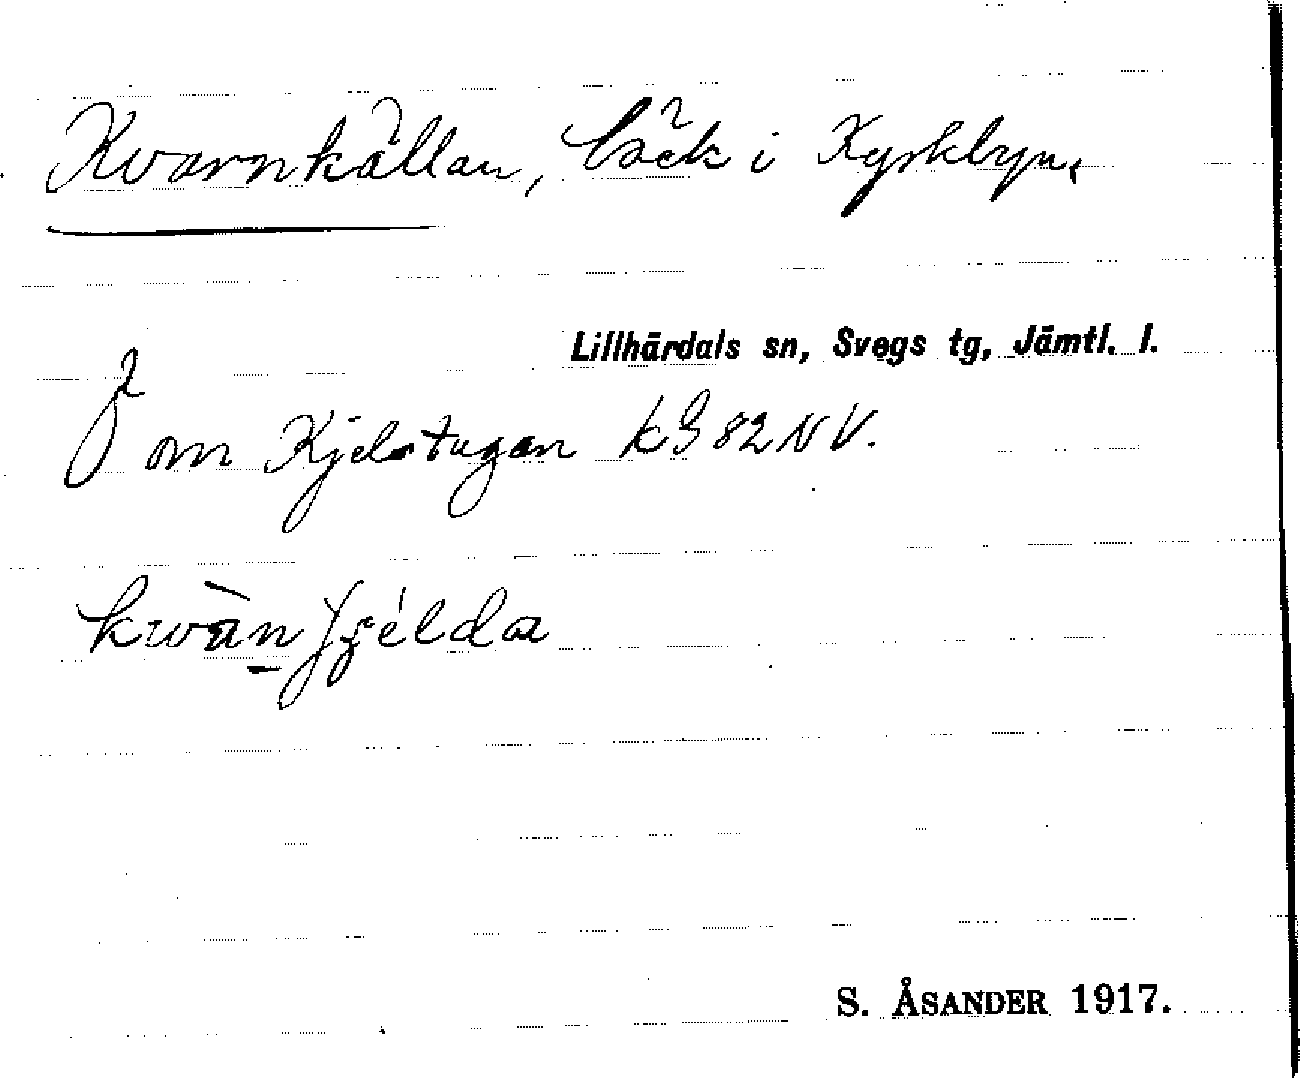 Kvarnkällan, bäck i Kyrkbyn.
Lillhärdals sn, Svegs tg, Jämtl. l.
om Kjelstugan kG 82 NV.
S. ÅSANDER 1917.